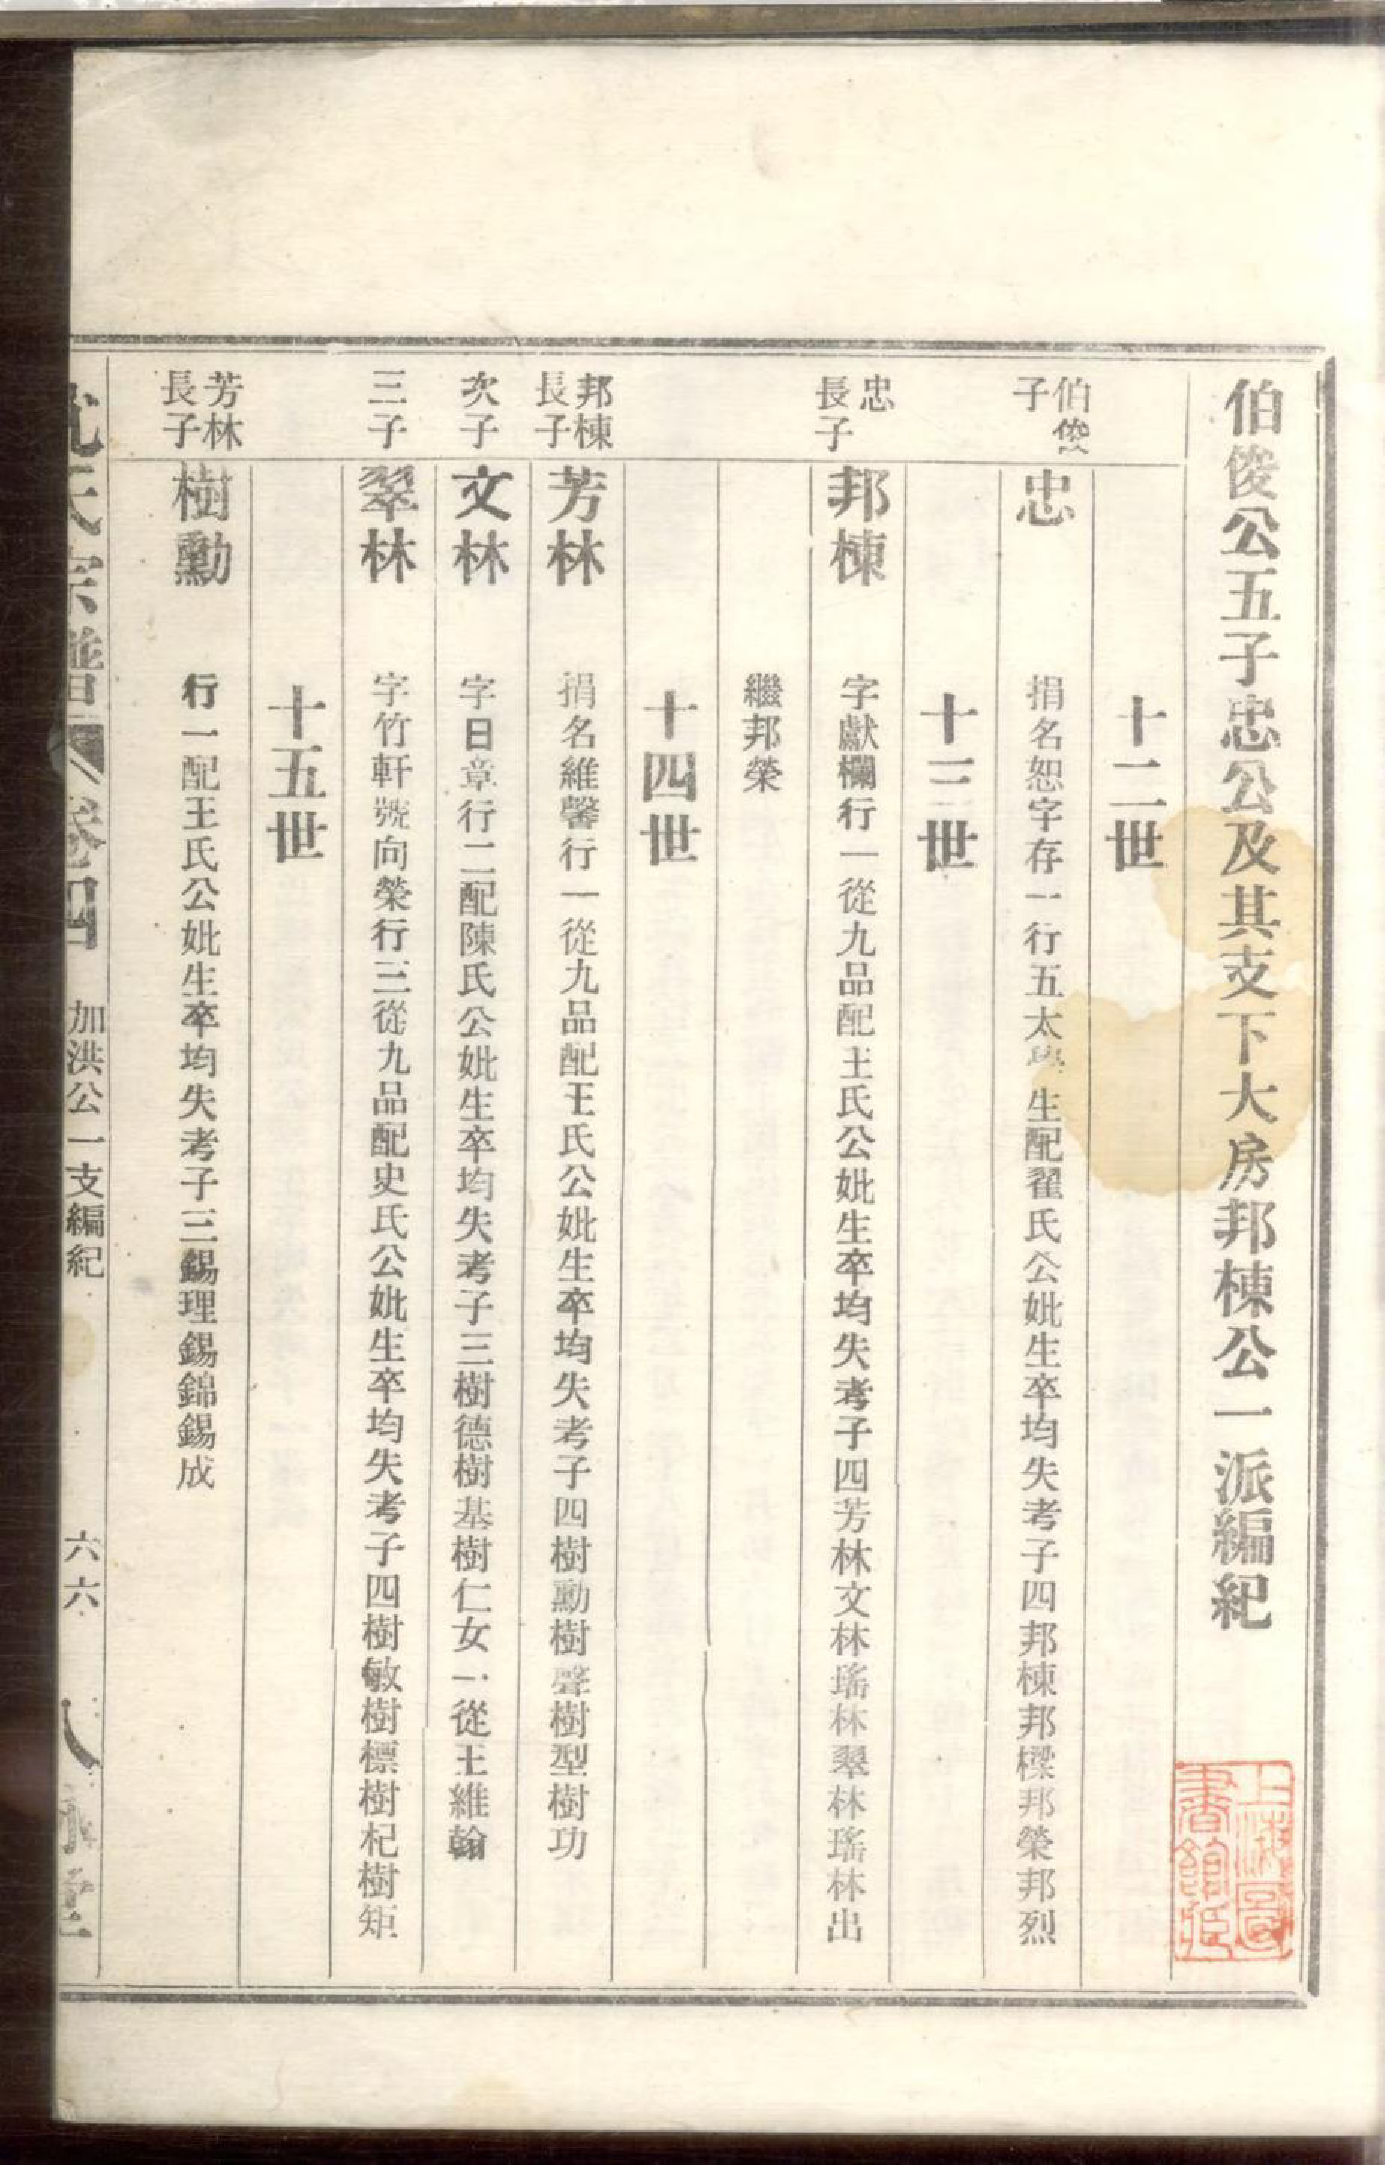 伯俊公五子忠公及其支下大房邦棟公一派編紀
十二世
伯俊
子
忠
捐名恕字存一行五太學生配翟氏公妣生卒均失考子四邦棟邦樑邦榮邦烈
十三世
忠
長子
邦棟
字獻欄行一從九品配王氏公妣生卒均失考子四芳林文林瑤林翠林瑤林出
繼邦榮
十四世
邦棟
長子
芳林
捐名維馨行一從九品配王氏公妣生卒均失考子四樹勳樹聲樹型樹功
次子
文林
字日章行二配陳氏公妣生卒均失考子三樹德樹基樹仁女一從王維翰
三子
翠林
字竹軒號向榮行三從九品配史氏公妣生卒均失考子四樹敏樹標樹杞樹矩
十五世
芳林
長子
樹勳
行一配王氏公妣生卒均失考子三錫理錫錦錫成
氏宗譜
卷四
加洪公一支編紀
六六
堂
上海圖
書館藏